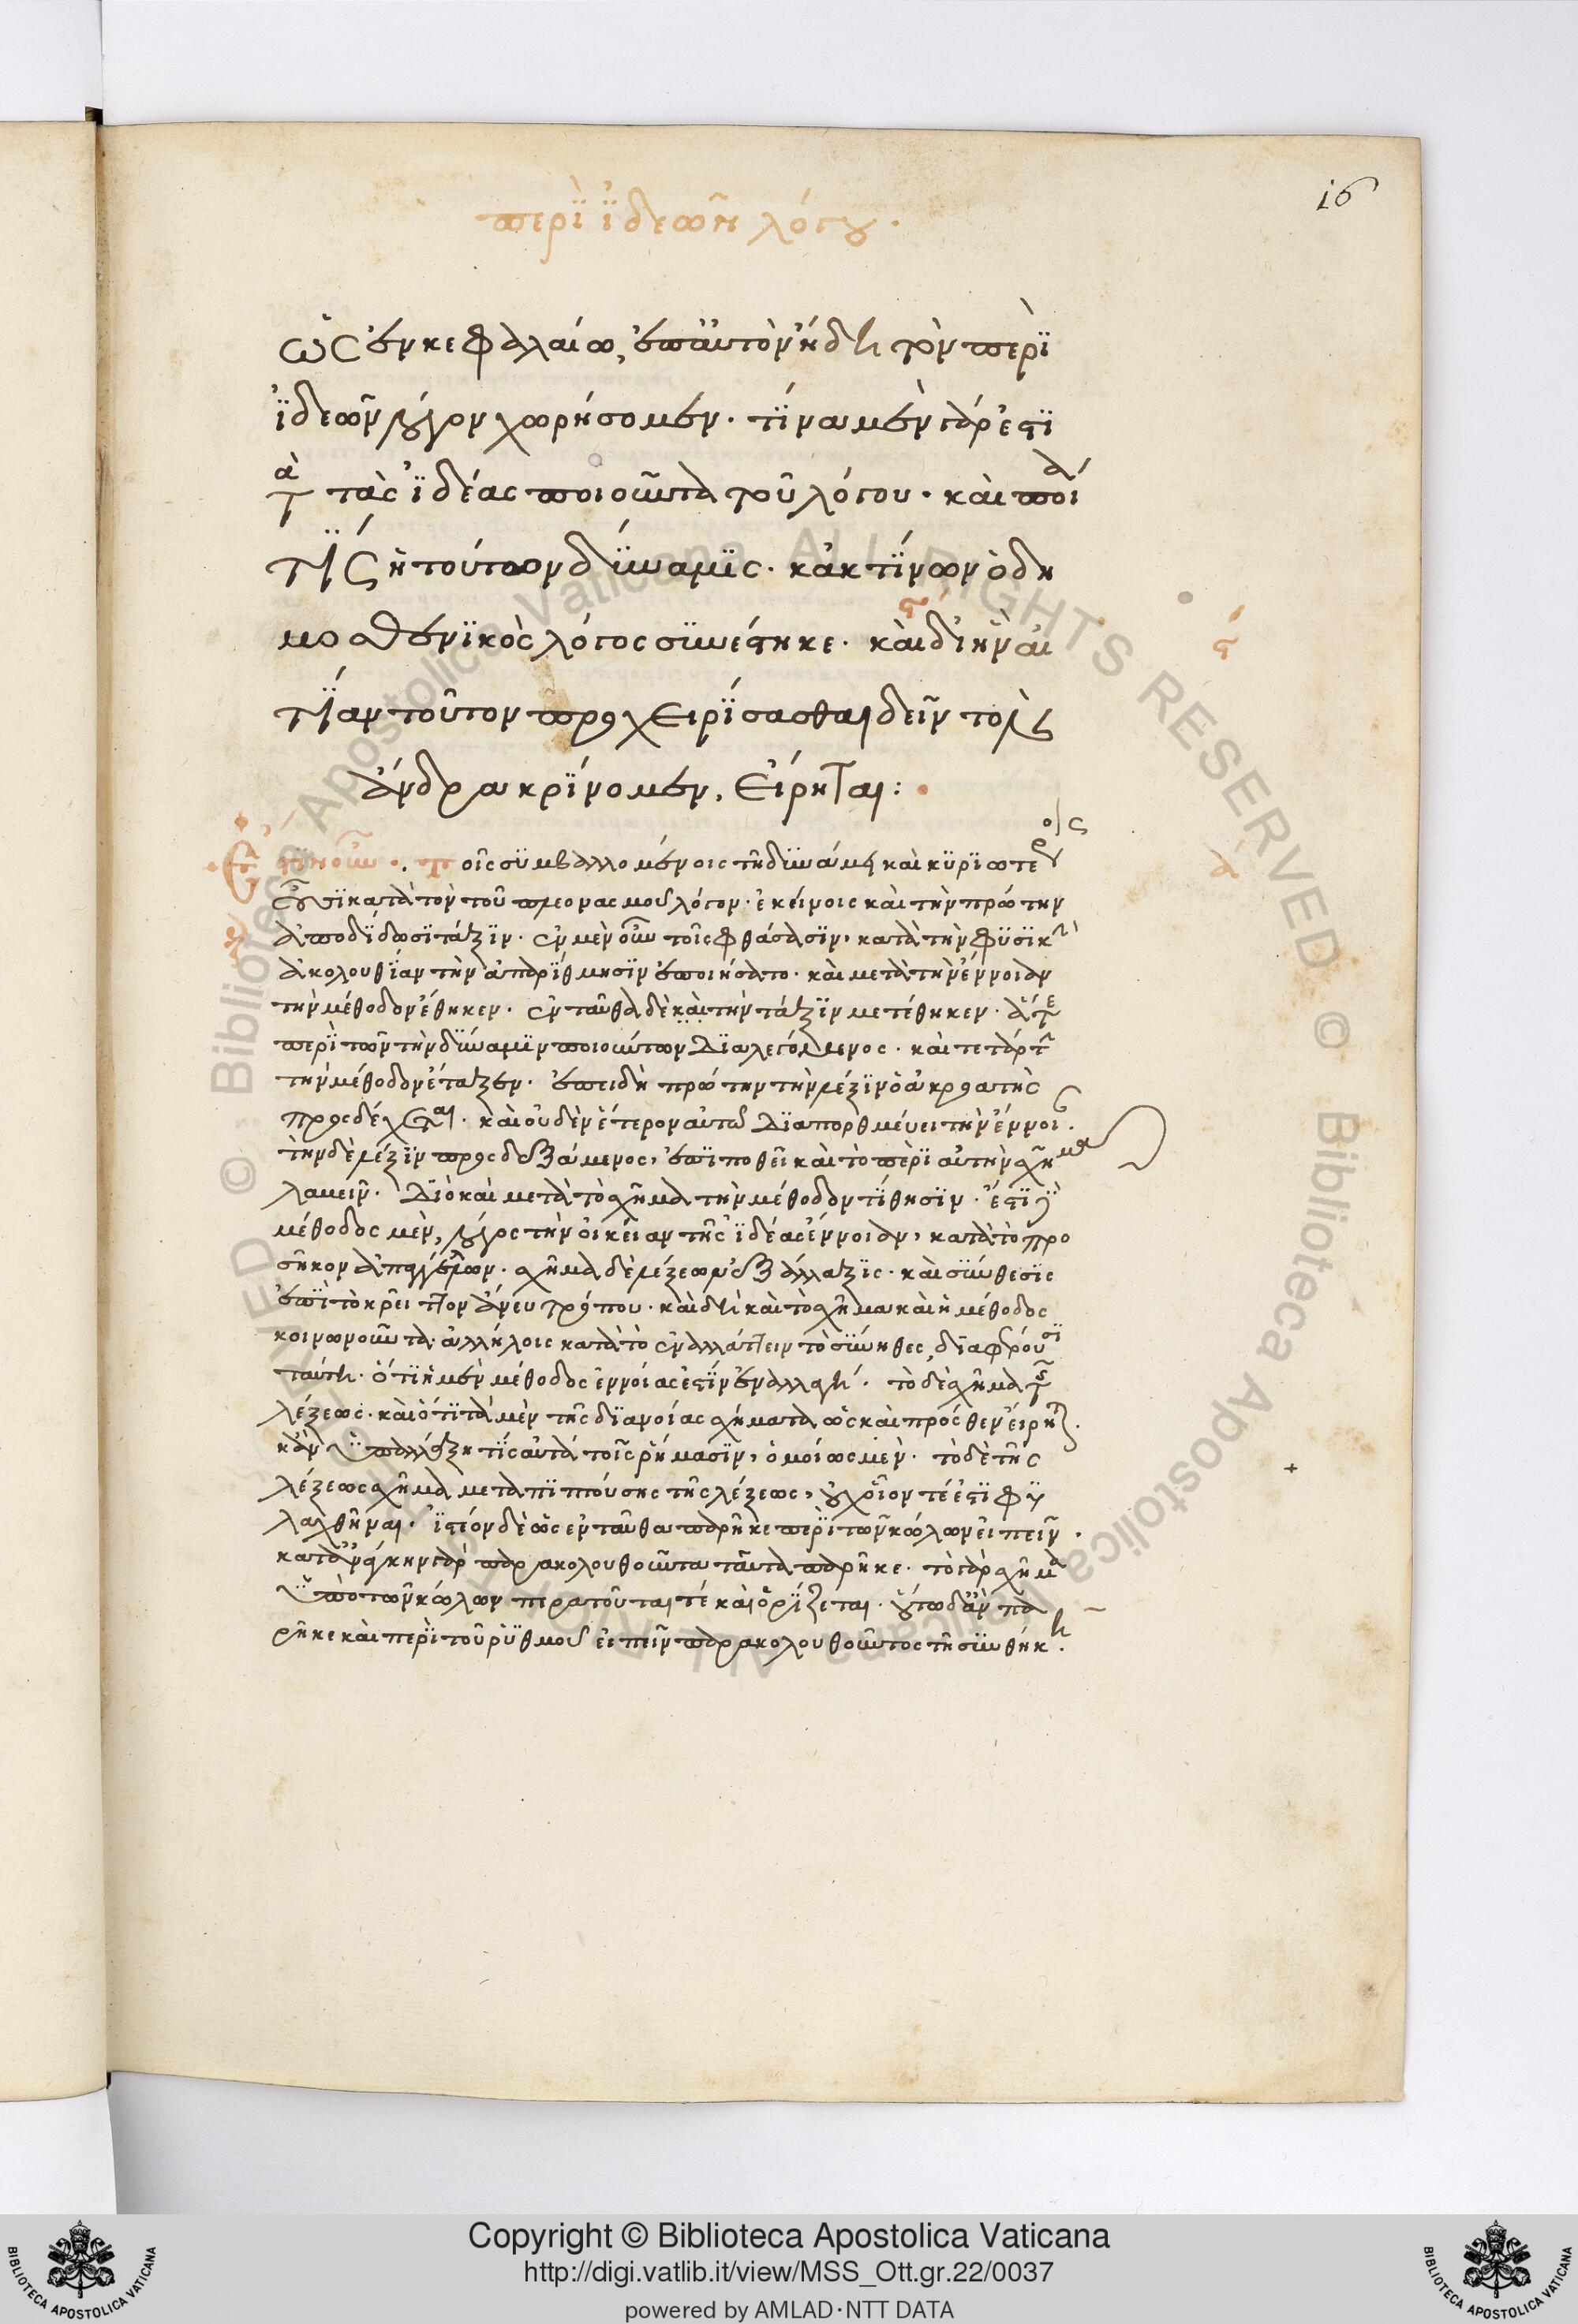 περὶ ἰδεῶν λόγου.
16
ὡς ἐν κεφαλαίω, ἐπ' αὐτὸν ἤδη τὸν περὶ
ἰδεῶν λόγον χωρήσομεν. τίνα μὲν γάρ ἐστι
τὰ τὰς ἰδέας ποιοῦντα τοῦ λόγου. καὶ ποία
τίς ἡ τούτων δύναμις. κἀκ τίνων ὁ δη
μοσθενικὸς λόγος συνέστηκε. καὶ δι' ἣν αἰ
τίαν τοῦτον προχειρίσασθαι δεῖν τοῖς
ἄνδρα κρίνομεν, εἴρηται:
τοῖς συμβαλλομένοις τῆ δυνάμει καὶ κυριωτέροις
οὖσι κατὰ τὸν τοῦ πλεονασμοῦ λόγον. ἐκείνοις καὶ τὴν πρώτην
ἀποδίδωσι τάξιν. ἐν μὲν οὖν τοῖς φθάσασιν, κατὰ τὴν φυσικὴν
ἀκολουθίαν τὴν ἀπαρίθμησιν ἐποιήσατο. καὶ μετὰ τὴν ἔννοιαν
τὴν μέθοδον ἔθηκεν. ἐνταῦθα δὲ καὶ τὴν τάξιν μετέθηκεν. ἅτε
περὶ τῶν τὴν δύναμιν ποιούντων διαλεγόμενος. καὶ τετάρτην
τὴν μέθοδον ἔταξεν. ἐπειδὴ πρώτην τὴν λέξιν ὁ ἀκροατὴς
προσδέχεται. καὶ οὐδὲν ἕτερον αὐτῶ διαπορθμεύει τὴν ἔννοιαν.
τὴν δὲ λέξιν προσδεξάμενος, ἐπιποθεῖ καὶ τὸ περὶ αὐτὴν σχῆμα
λαβεῖν. διὸ καὶ μετὰ τὸ σχῆμα τὴν μέθοδον τίθησιν. ἔστι δὲ
μέθοδος μὲν, λόγος τὴν οἰκείαν τῆς ἰδέας ἔννοιαν, κατὰ τὸ προ
σῆκον ἀπαγγέλλων. σχῆμα δὲ λέξεων ἐξάλλαξις. καὶ σύνθεσις
ἐπὶ τὸ κρεῖττον ἄνευ τρόπου. καὶ δὴ καὶ τὸ σχῆμα καὶ ἡ μέθοδος
κοινωνοῦντα ἀλλήλοις κατὰ τὸ ἐναλλάττειν τὸ σύνηθες, διαφέρουσι
ταύτη. ὅτι ἡ μὲν μέθοδος ἐννοίας ἐστὶν ἐναλλαγή. τὸ δὲ σχῆμα τῆς
λέξεως. καὶ ὅτι τὰ μὲν τῆς διανοίας σχήματα ὡς καὶ πρόσθεν εἴρηται.
κἂν ὑπαλλάξη τίς αὐτὰ τοῖς ῥήμασιν, ὁμοίως μὲν. τὸ δὲ τῆς
λέξεως σχῆμα μεταπιπτούσης τῆς λέξεως, οὐχ οἷόν τέ ἐστι φυ
λαχθῆναι. ἰστέον δὲ ὡς ἐνταῦθα παρῆκε περὶ τῶν κώλων εἰπεῖν.
κατ' ἀνάγκην γὰρ παρακολουθοῦντα ταῦτα παρῆκε. τὸ γὰρ σχῆμα
ὑπὸ τῶν κώλων περατοῦταί τε καὶ ὁρίζεται. οὕτω δ' ἂν πα
ρῆκε καὶ περὶ τοῦ ῥυθμοῦ εἰπεῖν παρακολουθοῦντος τῆ συνθήκη.
© Biblioteca Apostolica Vaticana ALL RIGHTS RESERVED
Copyright © Biblioteca Apostolica Vaticana
http://digi.vatlib.it/view/MSS_Ott.gr.22/0037
powered by AMLAD·NTT DATA
BIBLIOTECA APOSTOLICA VATICANA
BIBLIOTECA APOSTOLICA VATICANA